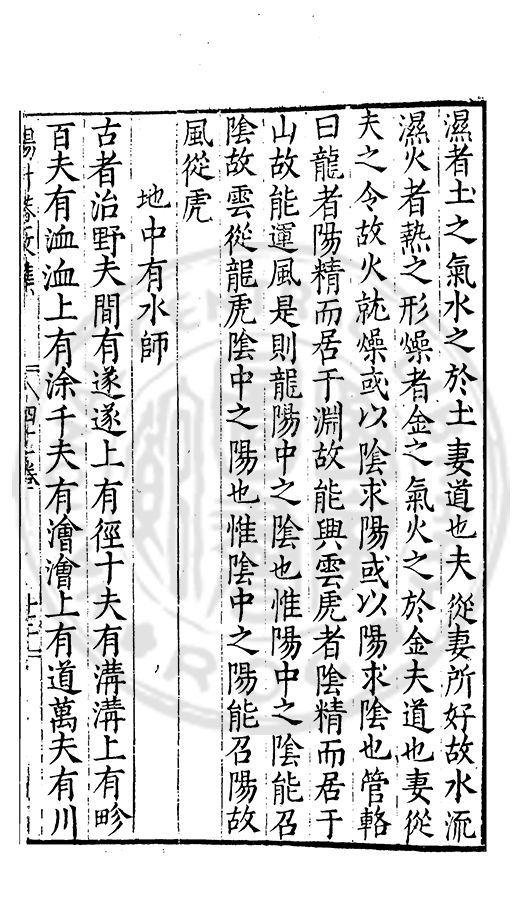 濕者土之氣水之於土妻道也夫從妻所好故水流
濕火者熱之形燥者金之氣火之於金夫道也妻從
夫之令故火就燥或以陰求陽或以陽求陰也管輅
曰龍者陽精而居于淵故能興雲虎者陰精而居于
山故能運風是則龍陽中之陰也惟陽中之陰能召
陰故雲從龍虎陰中之陽也惟陰中之陽能召陽故
風從虎
地中有水師
古者治野夫間有遂遂上有徑十夫有溝溝上有畛
百夫有洫洫上有涂千夫有澮澮上有道萬夫有川